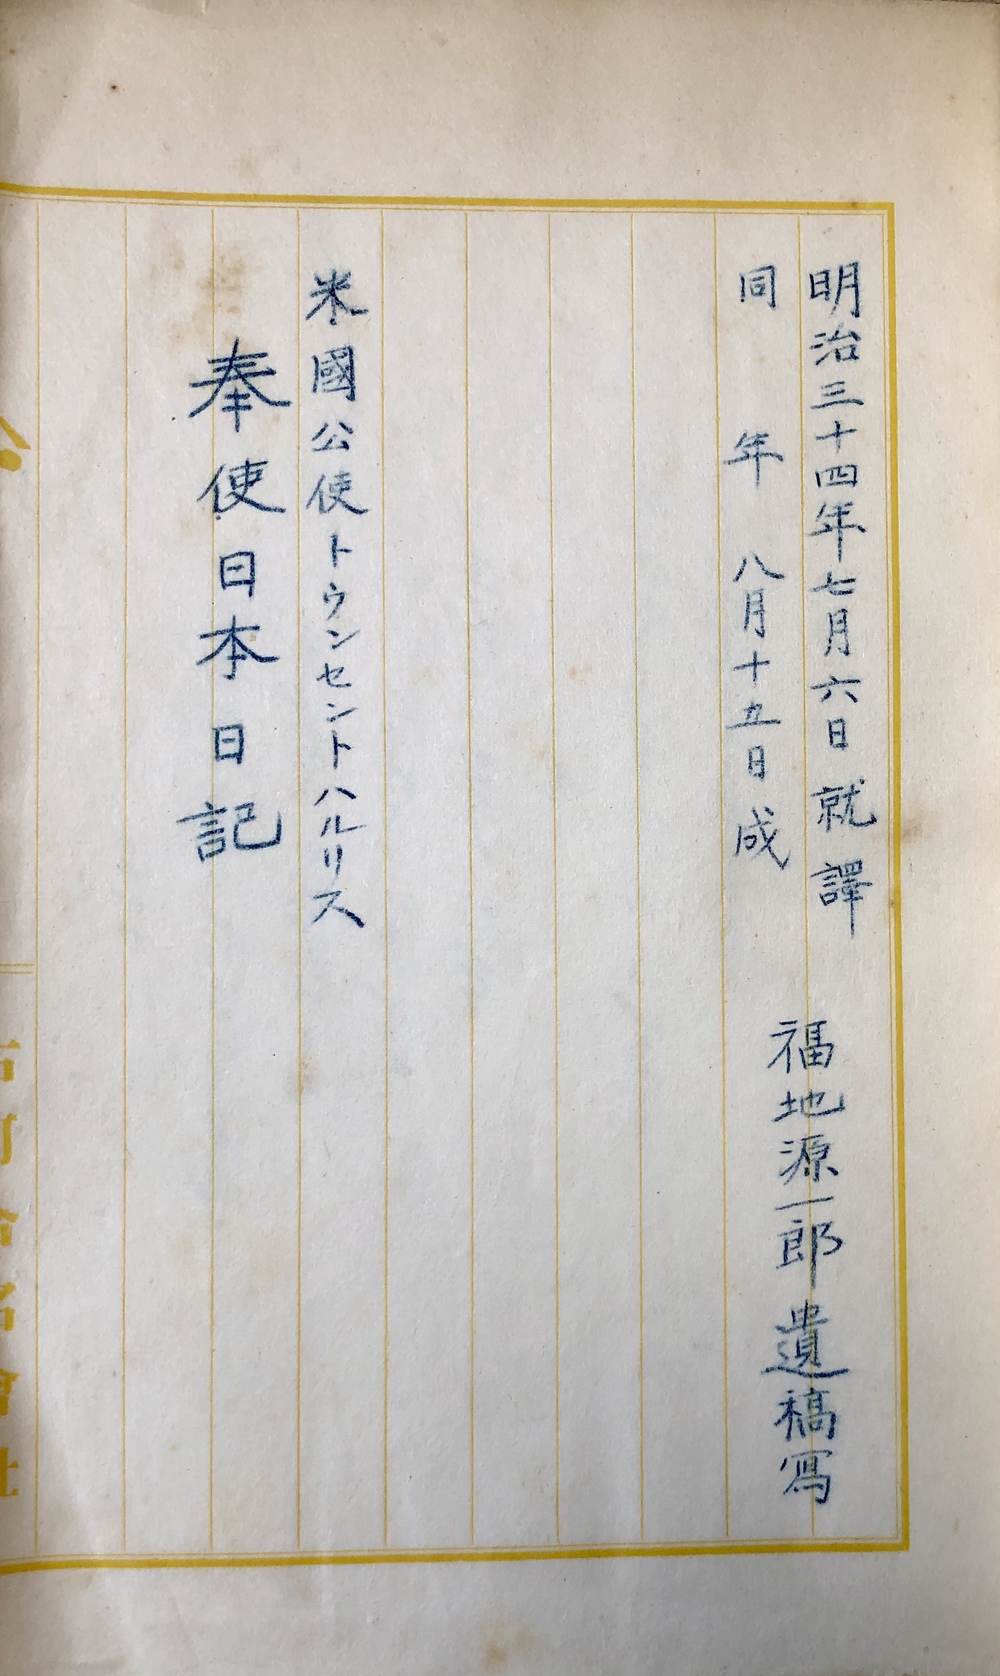 明治三十四年七月六日就譯
同年八月十五日成
福地源一郎遺稿寫
米國公使トウンセントハルリス
奉使日本日記